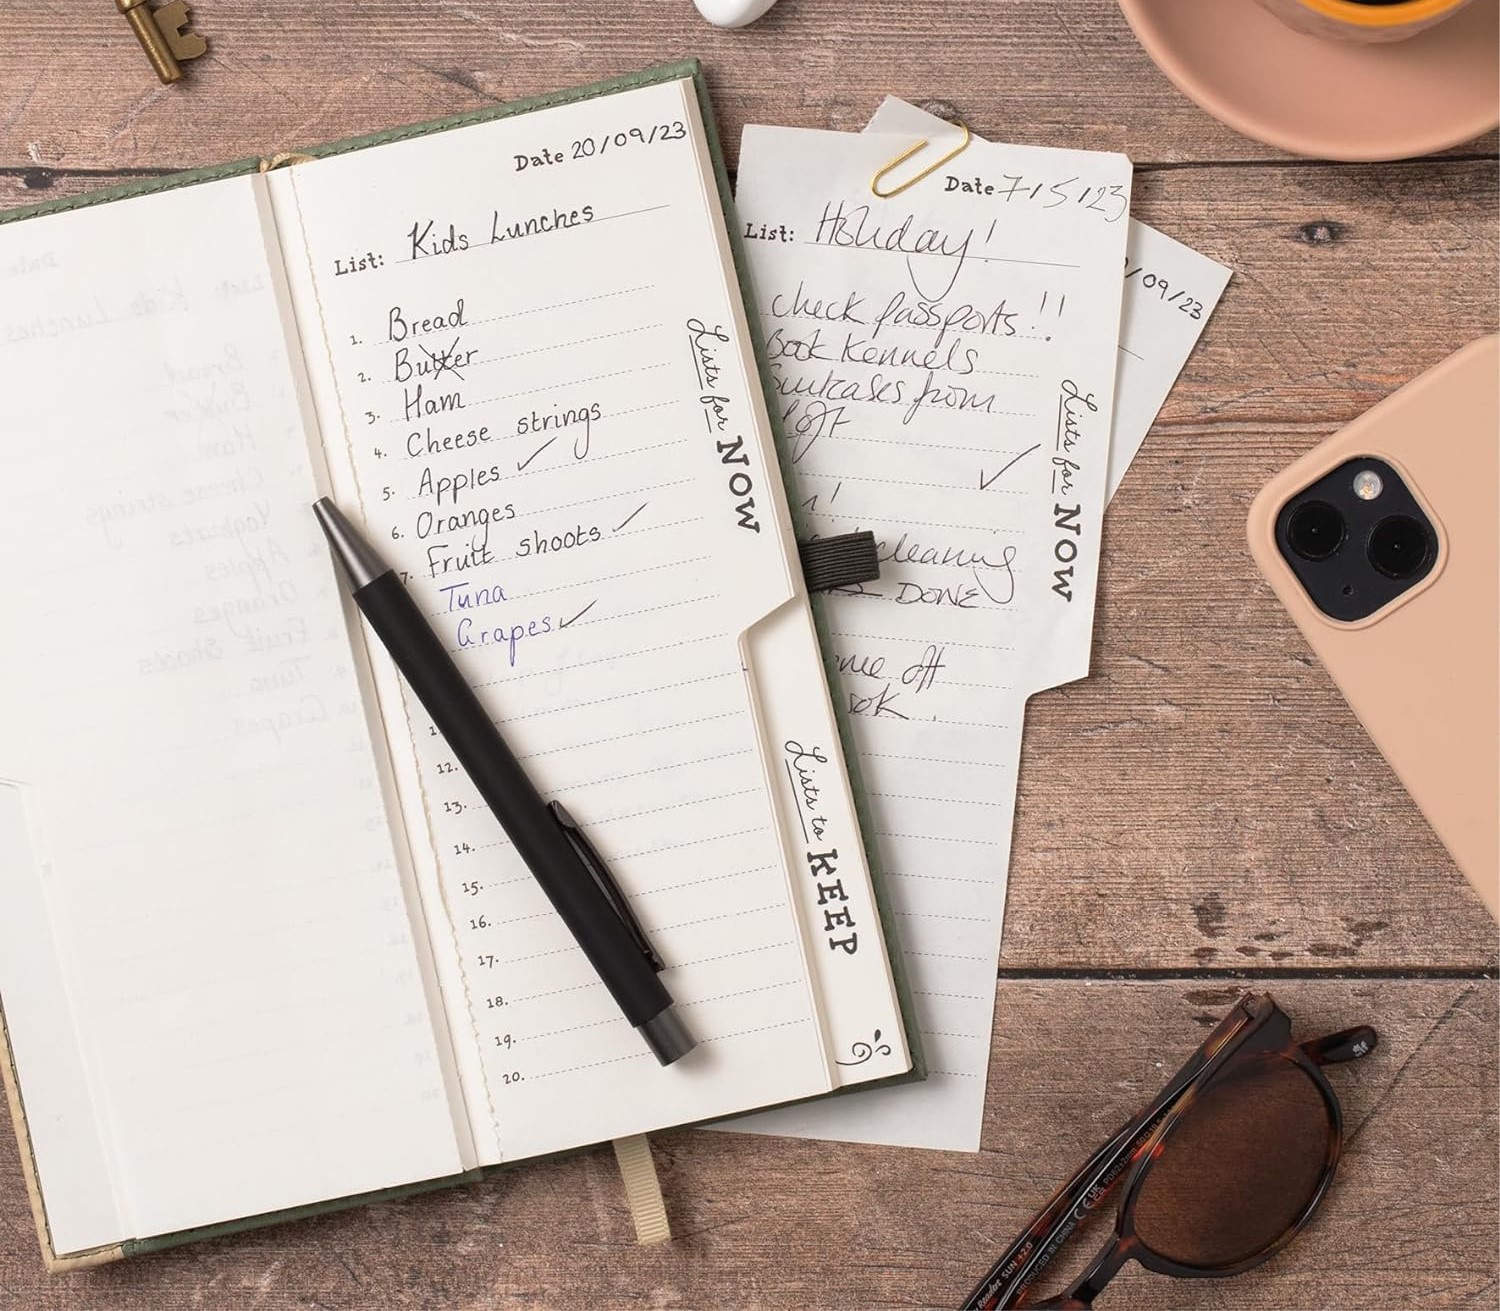 Date 20/09/23
List: Kids Lunches
1. Bread
2. Butter
3. Ham
4. Cheese strings
5. Apples ✓
6. Oranges
7. Fruit shoots ✓
Tuna
Grapes ✓
12.
13.
14.
15.
16.
17.
18.
19.
20.
Lists for NOW
Lists to KEEP
Date 7/5/23
List: Holiday!
Check passports!!
Book Kennels
Suitcases from
loft
✓
cleaning
DONE
off
Lists for NOW
/09/23
SUN +2.0
PRODUCED IN CHINA
CE UK CA